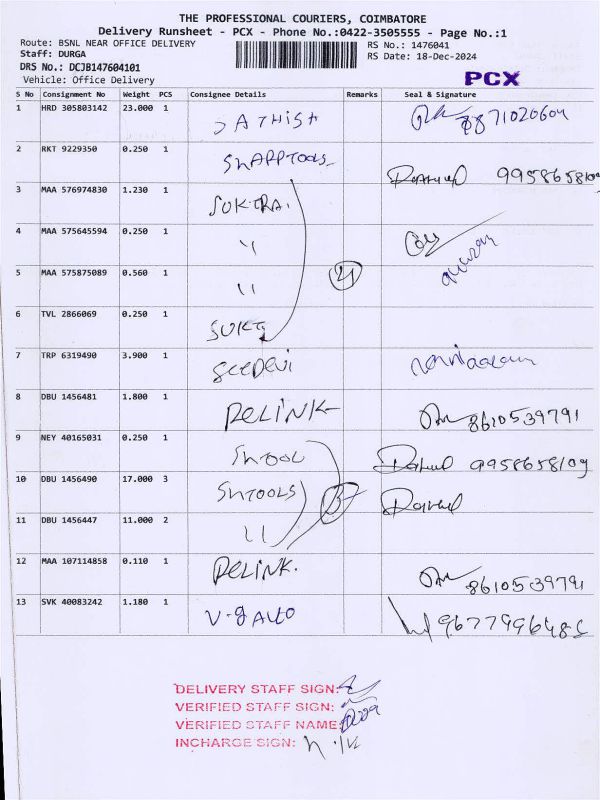 THE PROFESSIONAL COURIERS, COIMBATORE
Delivery Runsheet - PCX - Phone No.:0422-3505555 - Page No.:1
Route: BSNL NEAR OFFICE DELIVERY
RS No.: 1476041
Staff: DURGA
RS Date: 18-Dec-2024
DRS No.: DCJB147604101
Vehicle: Office Delivery
PCX
S No Consignment No Weight PCS Consignee Details Remarks Seal & Signature
1 HRD 305803142 23.000 1 SATHISH 8871020604
2 RKT 9229350 0.250 1 SHARPTOOLS 9958658109
3 MAA 576974830 1.230 1 SUKTRA.
4 MAA 575645594 0.250 1 "
5 MAA 575875089 0.560 1 "
6 TVL 2866069 0.250 1
7 TRP 6319490 3.900 1
8 DBU 1456481 1.800 1 RELINK 8610539791
9 NEY 40165031 0.250 1 9958658109
10 DBU 1456490 17.000 3 SHTOOLS
11 DBU 1456447 11.000 2 "
12 MAA 107114858 0.110 1 RELINK. 8610539791
13 SVK 40083242 1.180 1 V-9 AUTO
DELIVERY STAFF SIGN:
VERIFIED STAFF SIGN:
VERIFIED STAFF NAME:
INCHARGE SIGN: